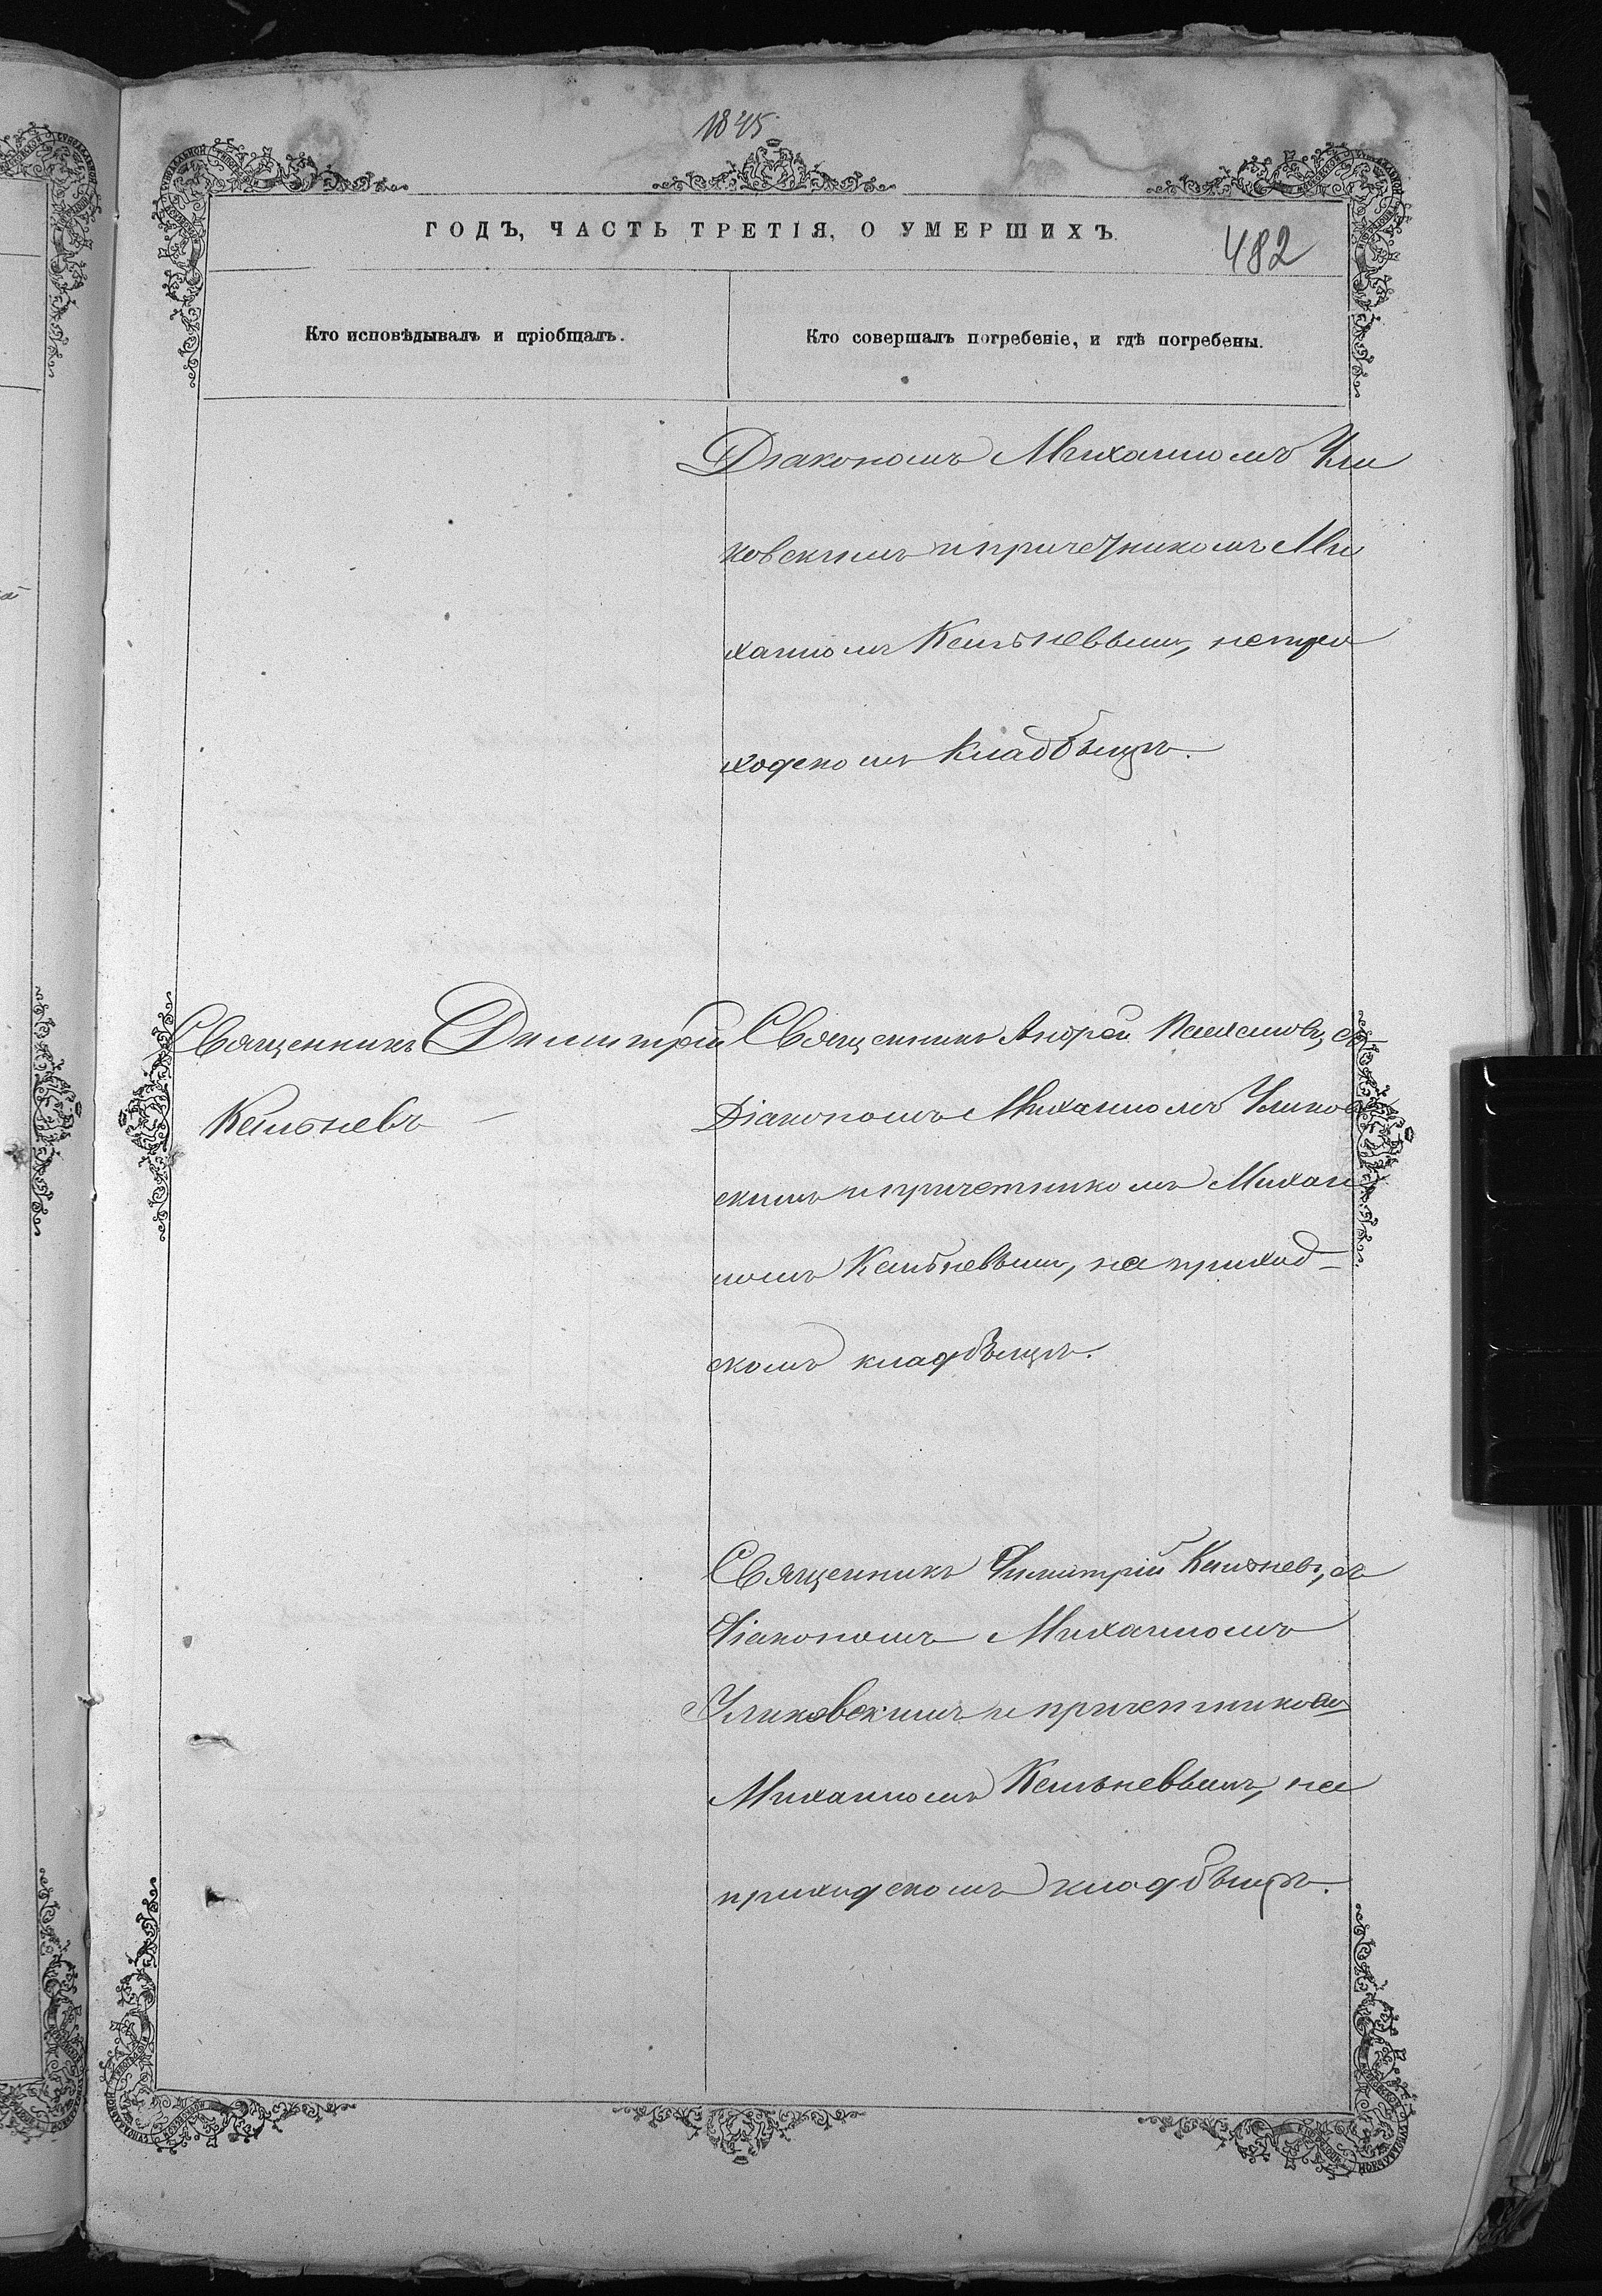 1845
ГОДЪ, ЧАСТЬ ТРЕТІЯ, О УМЕРШИХЪ.
482
Кто исповѣдывалъ и пріобщалъ.
Кто совершалъ погребеніе, и гдѣ погребены.
Діакономъ Михаиломъ Ули
ковскимъ и причетникомъ Ми
хаиломъ Кельневымъ, на при
ходскомъ кладбѣщѣ.
Священникъ Димитрій
Кельневъ
Священникъ Андрей съ
Діакономъ Михаиломъ Уликов
скимъ и причетникомъ Михаи
ломъ Кельневымъ, на приход-
скомъ кладбѣщѣ.
Священникъ Димитрій Кельневъ, съ
Діакономъ Михаиломъ
Уликовскимъ и причетникомъ
Михаиломъ Кельневымъ, на
приходскомъ кладбѣщѣ.